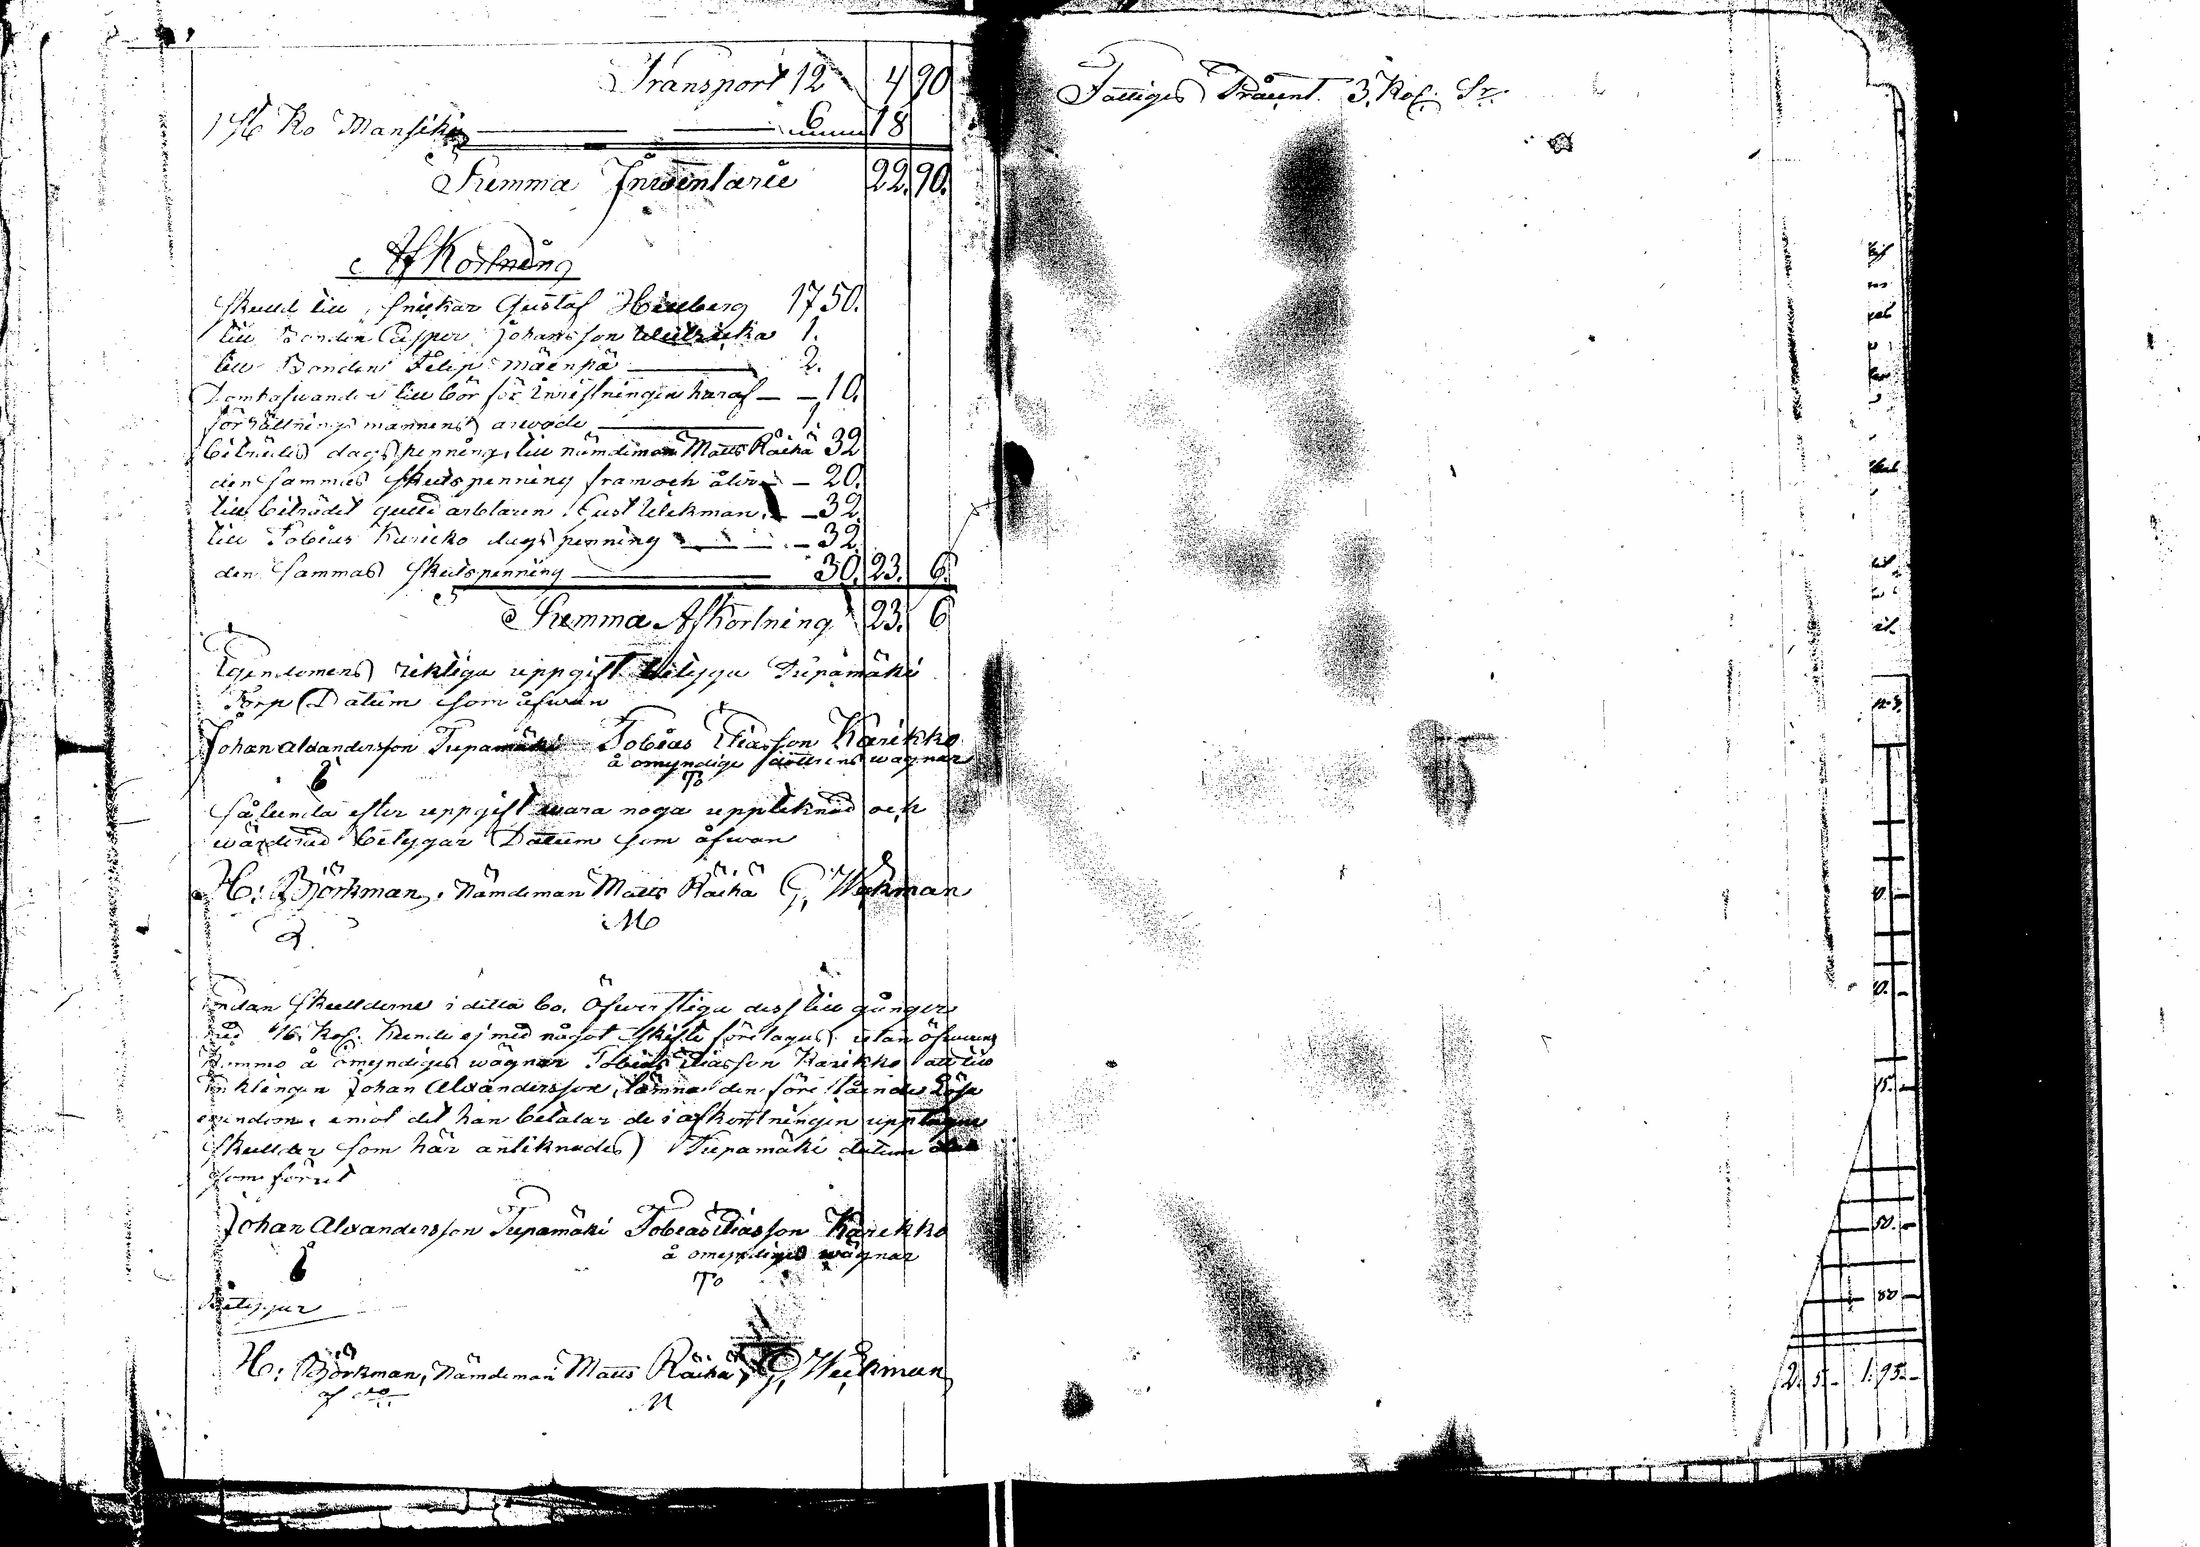 Transport 12 4 90
1 St Ko Mansiki 6 18
Summa Inwentarie 22. 90.
Afkortning
Skuld till snickar Gustaf 17 50.
till Bonden Casper Johansson 1.
till Bonden Filip Mäenpä 2.
till bör för inristningen häraf 10.
förrättnings mannens arwode 1.
biträdes dagspenning, till nämdeman Matts Räihä 32
den sammas skutspenning fram och åter 20.
till biträdet Gust Wekman 32
till Tobias Karikko dagspenning 32
den sammas skutspenning 30. 23. 6.
Summa Afkortning 23. 6
Egendomens riktiga uppgift betyga Tupamäki
Torp Datum som åfwan
Johan Alexandersson Tupamäki Tobias Eliasson Karikko
å omyndiga dottrens wägnar
To
Sålunda efter uppgift wara noga upptecknad och
wärderad betygar Datum som åfwan
H: Björkman, Nämdeman Matts Räihä G, Wekman
M
Emedan skullderne i detta bo öfwerstiga dess till gångar
med 16 Kop. kunde ej med något skifte företagas utan öfwerens
å omyndiges wägnar Tobias Eliasson Karikko att till
enklingen Johan Alexandersson lämna den förestående lösa
egendom, emot det han betalar de i afkortningen upptagne
skullder som här antecknades Tupamäki datum
som förut
Johan Alexandersson Tupamäki Tobias Eliasson Karikko
å omyndiges wägnar
To
Betygar
H: Björkman, Nämdeman Matts Räihä, G, Wekman
M
Fattiges Procent. 3. Kop. Sr.
15.
50.
80
2. 5 1. 95.